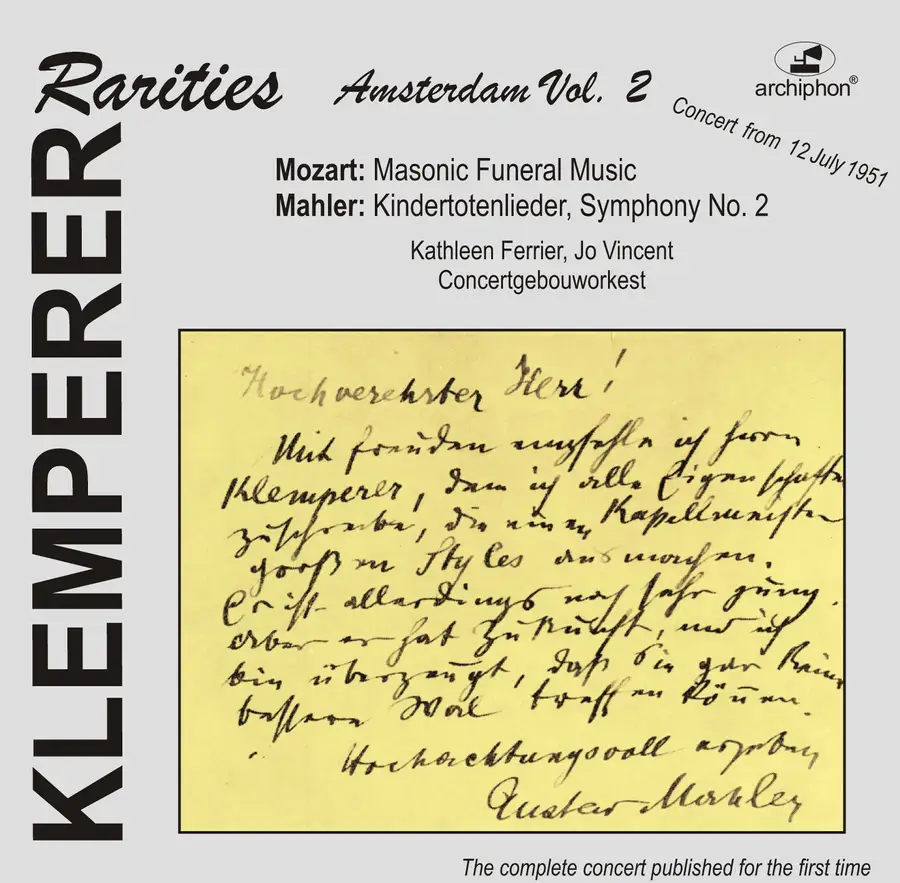 KLEMPERER
Rarities
Amsterdam Vol. 2
archiphon®
Concert from 12 July 1951
Mozart: Masonic Funeral Music
Mahler: Kindertotenlieder, Symphony No. 2
Kathleen Ferrier, Jo Vincent
Concertgebouworkest
Hochverehrter Herr!
Mit freuden empfehle ich Herrn
Klemperer, dem ich alle Eigenschaften
zuschreibe, die einen Kapellmeister
großen Styles ausmachen.
Er ist allerdings noch sehr jung.
aber er hat Zukunft, und ich
bin überzeugt, daß Sie gar keine
bessere Wal treffen können.
Hochachtungsvoll ergeben
Gustav Mahler
The complete concert published for the first time